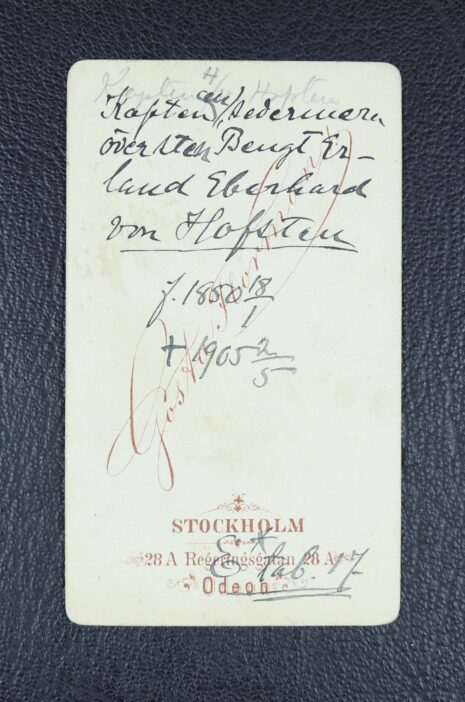 4
Kapten v. Hofsten
Kaptenen, sedermera
översten Bengt Er-
land Eberhard
von Hofsten
f. 1850 18/1
† 1905 2/5
Gösta Florman
STOCKHOLM
28 A Regeringsgatan 28 A
Odeon
E* tab. 17